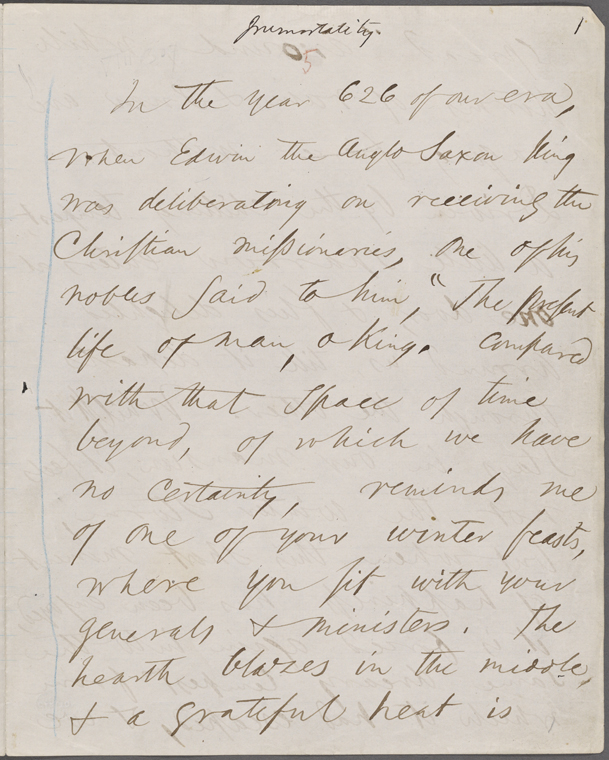 Immortality.
1
5
In the year 626 of our era,
when Edwin the Anglo Saxon King
was deliberating on receiving the
Christian missionaries, one of his
nobles said to him, "The present
life of man, O King, compared
with that space of time
beyond, of which we have
no certainty, reminds me
of one of your winter feasts,
where you sit with your
generals & ministers. The
hearth blazes in the middle,
& a grateful heat is